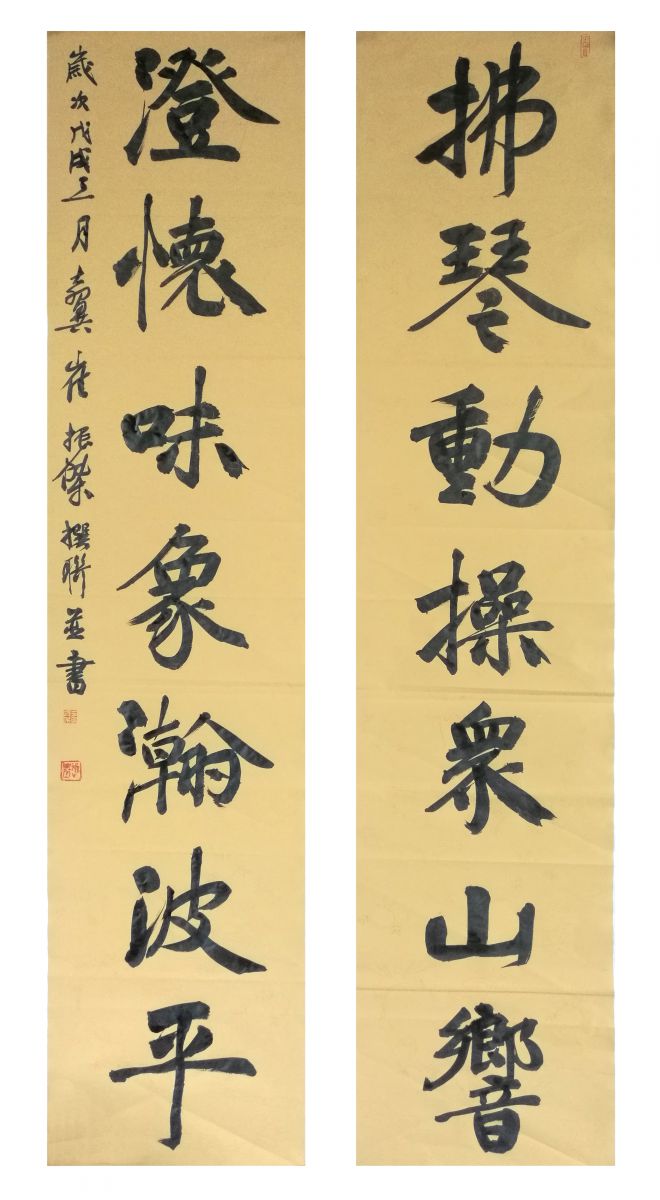 拂琴動操衆山響
澄懷味象瀚波平
歲次戊戌三月冀崔振傑撰聯並書